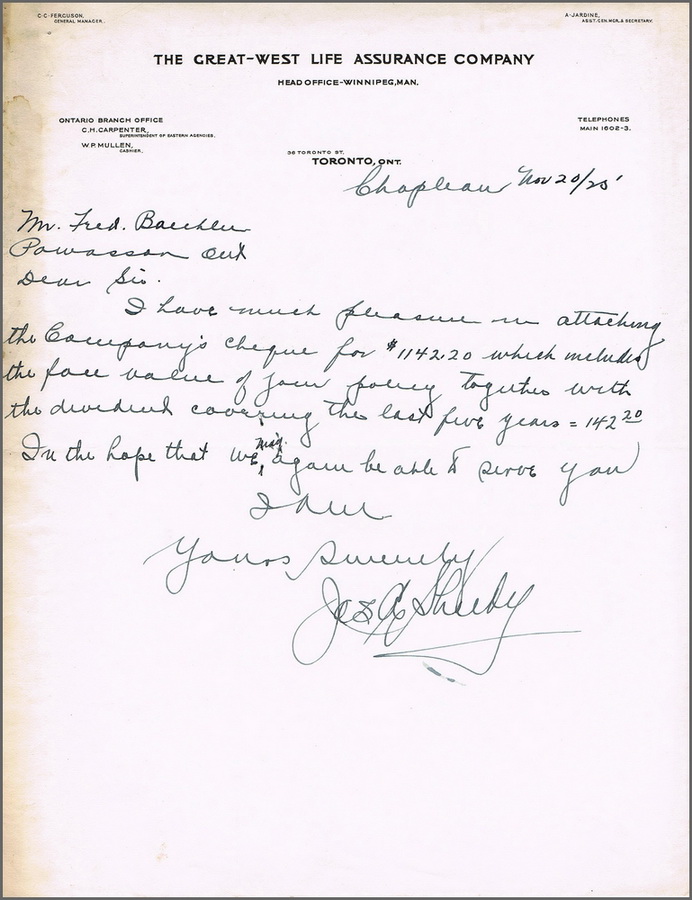 C·C·FERGUSON,
GENERAL MANAGER.
A·JARDINE,
ASST. GEN. MGR. & SECRETARY.
THE GREAT-WEST LIFE ASSURANCE COMPANY
HEAD OFFICE-WINNIPEG, MAN.
ONTARIO BRANCH OFFICE
C.H. CARPENTER,
SUPERINTENDENT OF EASTERN AGENCIES.
W.P. MULLEN,
CASHIER.
TELEPHONES
MAIN 1602-3.
36 TORONTO ST.
TORONTO, ONT.
Chapleau Nov 20/25
Mr. Fred. Baechler
Powassan Ont
Dear Sir.
I have much pleasure in attaching
the Company's cheque for $1142.20 which includes
the face value of your policy together with
the dividend covering the last five years = 142 20
In the hope that we may again be able to serve you
I am
Yours Sincerely
Jos A Sheedy